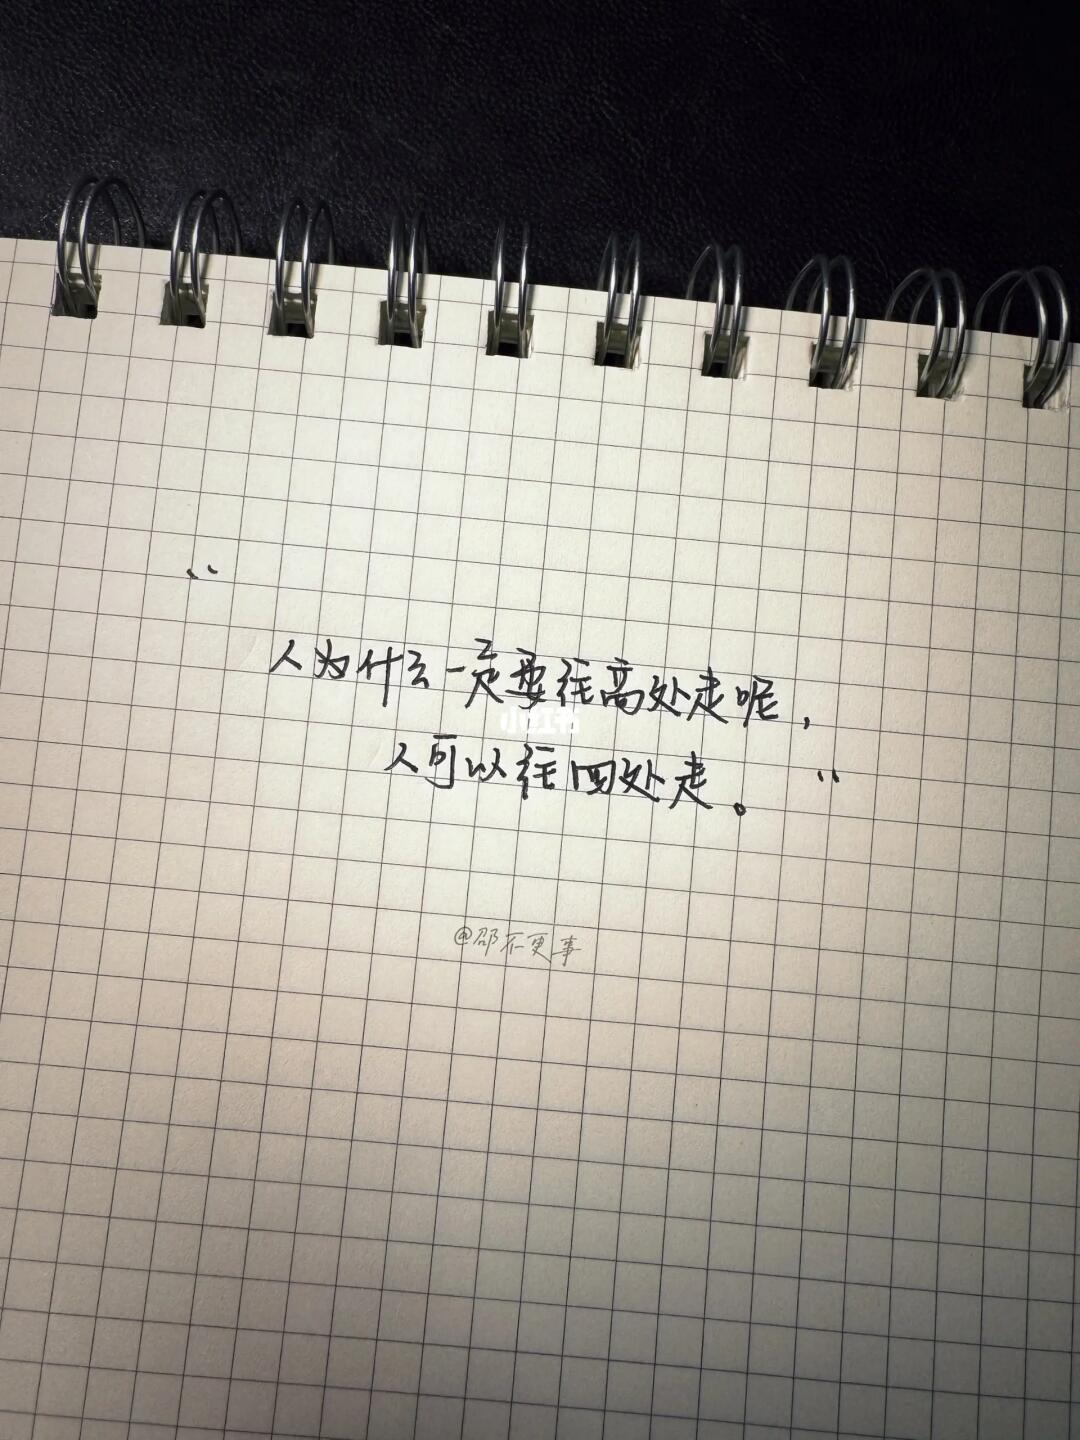 “
人为什么一定要往高处走呢，
小红书
人可以往四处走。”
@邵不更事